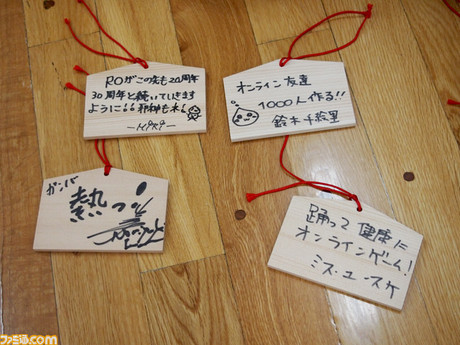 ROがこの先も20周年
30周年と続いていきます
ように!!
―MIKI―
オンライン友達
1000人作る!!
鈴木千枚里
ガンバ
熱
踊って健康に
オンラインゲーム!
ミス・ユースケ
ファミ通.com